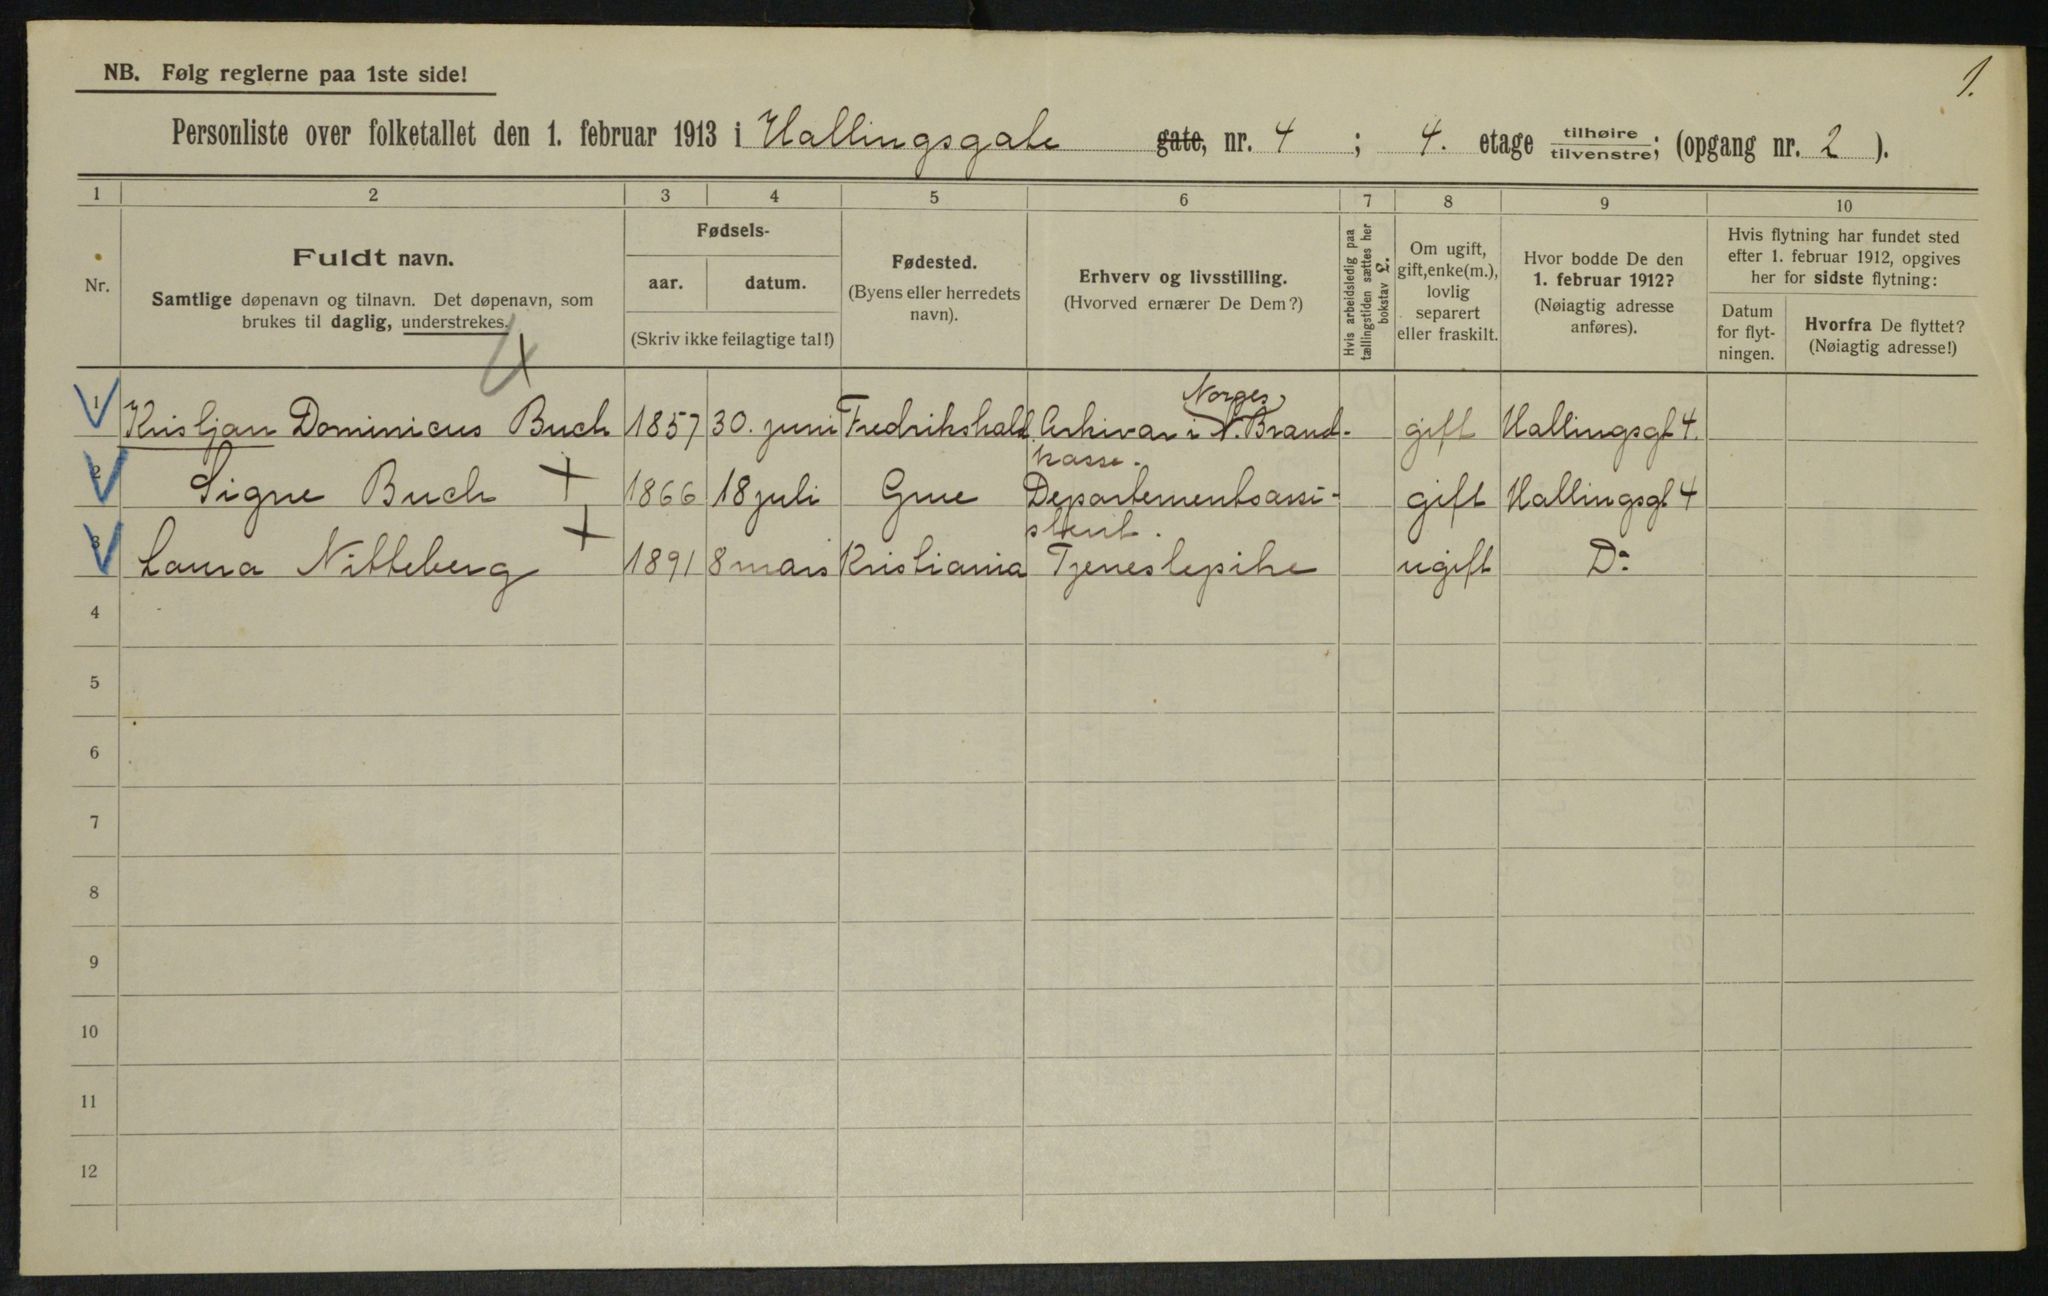 1.
NB. Følg reglerne paa 1ste side!
Personliste over folketallet den 1. februar 1913 i Hallingsgate gate, nr. 4 ; 4. etage tilhøire tilvenstre; (opgang nr. 2 ).
1 2 3 4 5 6 7 8 9 10
Nr.
Fuldt navn.
Samtlige døpenavn og tilnavn. Det døpenavn, som
brukes til daglig, understrekes.
Fødsels-
aar. datum.
(Skriv ikke feilagtige tal!)
Fødested.
(Byens eller herredets
navn).
Erhverv og livsstilling.
(Hvorved ernærer De Dem?)
Hvis arbeidsledig paa
tællingstiden sættes her
bokstav L.
Om ugift,
gift, enke(m.),
lovlig
separert
eller fraskilt.
Hvor bodde De den
1. februar 1912?
(Nøiagtig adresse
anføres).
Hvis flytning har fundet sted
efter 1. februar 1912, opgives
her for sidste flytning:
Datum
for flyt-
ningen.
Hvorfra De flyttet?
(Nøiagtig adresse!)
Norges
1 Kristjan Dominicus Buch 1857 30. juni Fredrikshald Arkivar i N. Brand- gift Hallingsgt 4.
kasse.
2 Signe Buch 1866 18 juli Grue Departementsassi- gift Hallingsgt 4
stent.
3 Laura Nitteberg 1891 8 mars Kristiania Tjenestepike ugift Do
4
5
6
7
8
9
10
11
12